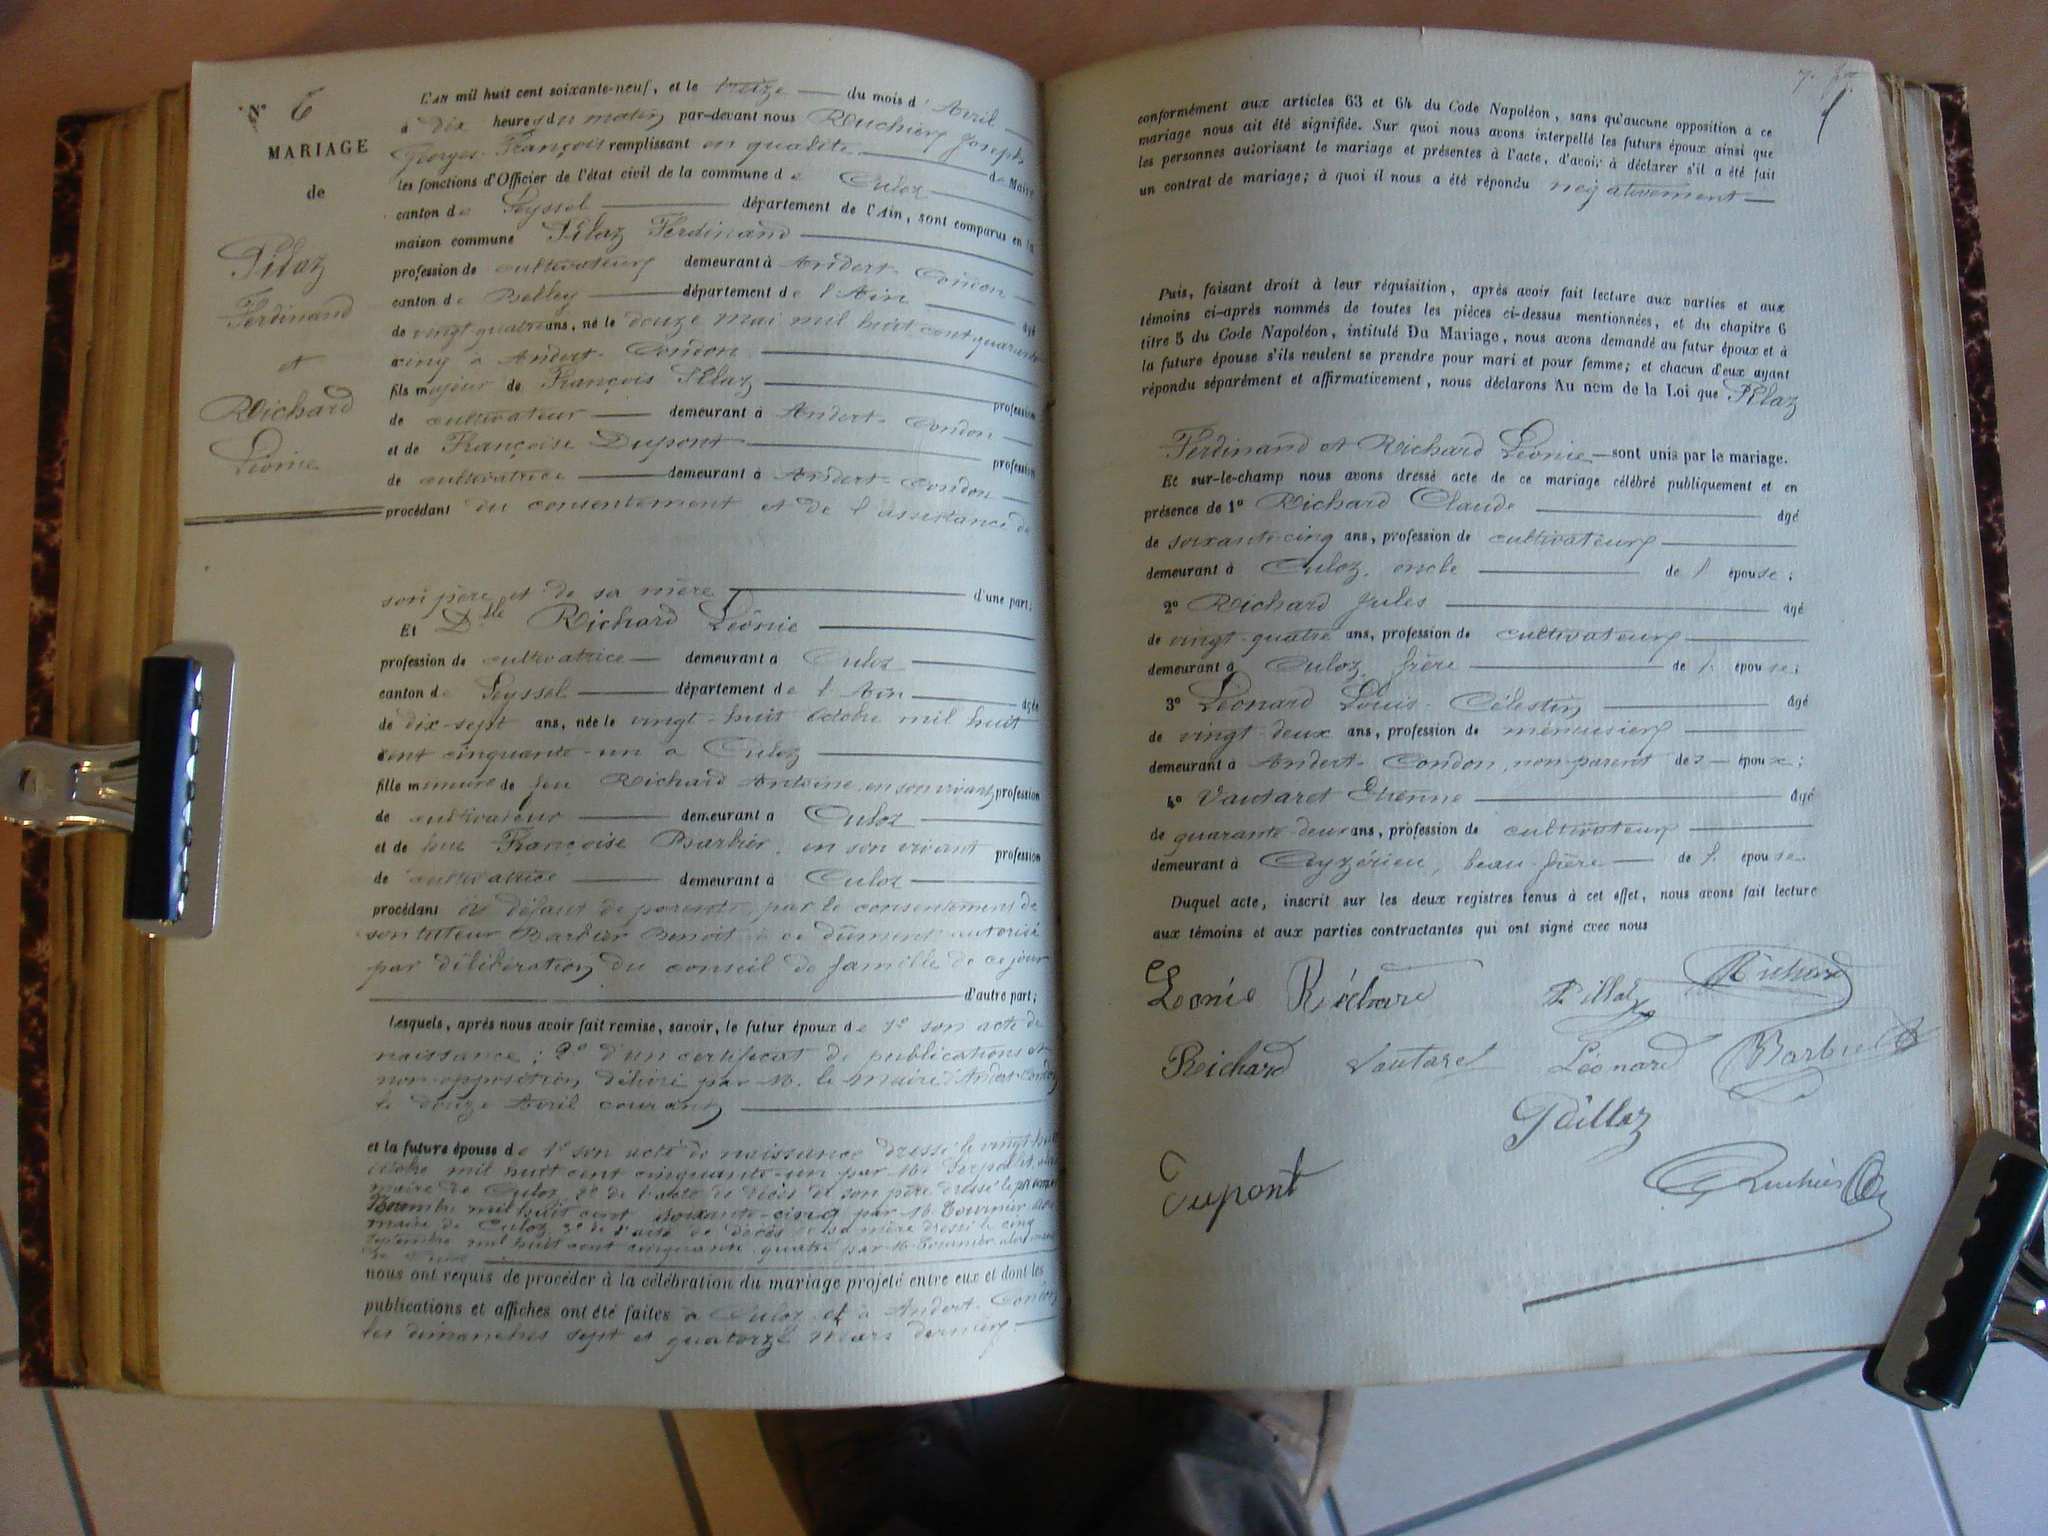 N° 6
MARIAGE
de
Pilaz
Ferdinand
et
Richard
Léonie
L'AN mil huit cent soixante-neuf, et le treize du mois d'Avril
à dix heures du matin par-devant nous Ruchier Joseph
Georges François remplissant en qualité de Maire
les fonctions d'Officier de l'état civil de la commune de Culoz
canton de Seyssel département de l'Ain, sont comparus en la
maison commune Pilaz Ferdinand
profession de cultivateur demeurant à Andert-Condon
canton de Belley département de l'Ain âgé
de vingt-quatre ans, né le douze mai mil huit cent quarante
cinq à Andert-Condon
fils majeur de François Pilaz profession
de cultivateur demeurant à Andert-Condon
et de Françoise Dupont profession
de cultivatrice demeurant à Andert-Condon
procédant du consentement et de l'assistance de
son père et de sa mère d'une part;
Et Dlle Richard Léonie
profession de cultivatrice demeurant à Culoz
canton de Seyssel département de l'Ain âgée
de dix-sept ans, née le vingt-huit Octobre mil huit
cent cinquante-un à Culoz
fille mineure de feu Richard Antoine, en son vivant profession
de cultivateur demeurant à Culoz
et de Françoise Barbier, en son vivant profession
de cultivatrice demeurant à Culoz
procédant à défaut de parents, par le consentement de
son tuteur Barbier Benoit à ce dûment autorisé
par délibération du conseil de famille de ce jour
d'autre part;
Lesquels, après nous avoir fait remise, savoir, le futur époux de 1° son acte de
naissance; 2° d'un certificat de publications et
non-opposition délivré par M. le maire d'Andert-Condon
le douze Avril courant
et la future épouse de 1° son acte de naissance dressé le vingt-huit
octobre mil huit cent cinquante-un par M.
maire de Culoz 2° de l'acte de décès de son père dressé le
mil huit cent soixante-cinq par M. Tournier
maire de Culoz 3° de l'acte de décès de sa mère dressé le cinq
septembre mil huit cent cinquante quatre par M. Tournier
nous ont requis de procéder à la célébration du mariage projeté entre eux et dont les
publications et affiches ont été faites à Culoz et à Andert-Condon
les dimanches sept et quatorze Mars dernier
conformément aux articles 63 et 64 du Code Napoléon, sans qu'aucune opposition à ce
mariage nous ait été signifiée. Sur quoi nous avons interpellé les futurs époux ainsi que
les personnes autorisant le mariage et présentes à l'acte, d'avoir à déclarer s'il a été fait
un contrat de mariage; à quoi il nous a été répondu négativement
Puis, faisant droit à leur réquisition, après avoir fait lecture aux parties et aux
témoins ci-après nommés de toutes les pièces ci-dessus mentionnées, et du chapitre 6
titre 5 du Code Napoléon, intitulé Du Mariage, nous avons demandé au futur époux et à
la future épouse s'ils veulent se prendre pour mari et pour femme; et chacun d'eux ayant
répondu séparément et affirmativement, nous déclarons Au nom de la Loi que Pilaz
Ferdinand et Richard Léonie sont unis par le mariage.
Et sur-le-champ nous avons dressé acte de ce mariage célébré publiquement et en
présence de 1° Richard Claude âgé
de soixante-cinq ans, profession de cultivateur
demeurant à Culoz, oncle de l'épouse;
2° Richard Jules âgé
de vingt-quatre ans, profession de cultivateur
demeurant à Culoz, frère de l'épouse;
3° Léonard Louis-Célestin âgé
de vingt-deux ans, profession de ménuisier
demeurant à Andert-Condon, non parent des époux;
4° Vautaret Etienne âgé
de quarante-deux ans, profession de cultivateur
demeurant à Ceyzérieu, beau-frère de l'épouse
Duquel acte, inscrit sur les deux registres tenus à cet effet, nous avons fait lecture
aux témoins et aux parties contractantes qui ont signé avec nous
Léonie Richard Pillaz Richard
Richard Vautaret Léonard Barbier
Pillaz
Dupont Ruchier